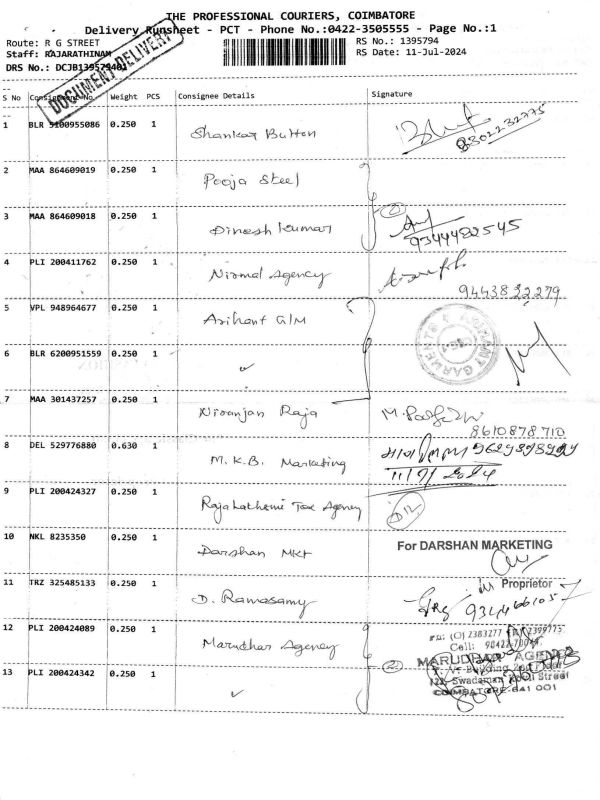 THE PROFESSIONAL COURIERS, COIMBATORE
Delivery Runsheet - PCT - Phone No.:0422-3505555 - Page No.:1
Route: R G STREET
RS No.: 1395794
Staff: RAJARATHINAM
RS Date: 11-Jul-2024
DRS No.: DCJB139579401
DOCUMENT DELIVERY
S No Consignment No. Weight PCS Consignee Details Signature
1 BLR 5100955086 0.250 1 Shankar Button 8302232775
2 MAA 864609019 0.250 1 Pooja Steel
3 MAA 864609018 0.250 1 Dinesh Kumar (2) 9344482545
4 PLI 200411762 0.250 1 Nirmal Agency 9443822279
5 VPL 948964677 0.250 1 Arihant G/M ARIHANT GARMENTS
6 BLR 6200951559 0.250 1 ✓
7 MAA 301437257 0.250 1 Niranjan Raja M. 8610878710
8 DEL 529776880 0.630 1 M.K.B. Marketing
9 PLI 200424327 0.250 1 Rajalakshmi Tex Agency D12
10 NKL 8235350 0.250 1 Darshan Mkt For DARSHAN MARKETING
Proprietor
11 TRZ 325485133 0.250 1 D. Ramasamy
12 PLI 200424089 0.250 1 Marudhar Agency (2)
(O) 2383277 (R) 2399775
Cell:
MARUDHAR AGENCY
13 PLI 200424342 0.250 1 ✓
Street
COIMBATORE-641 001